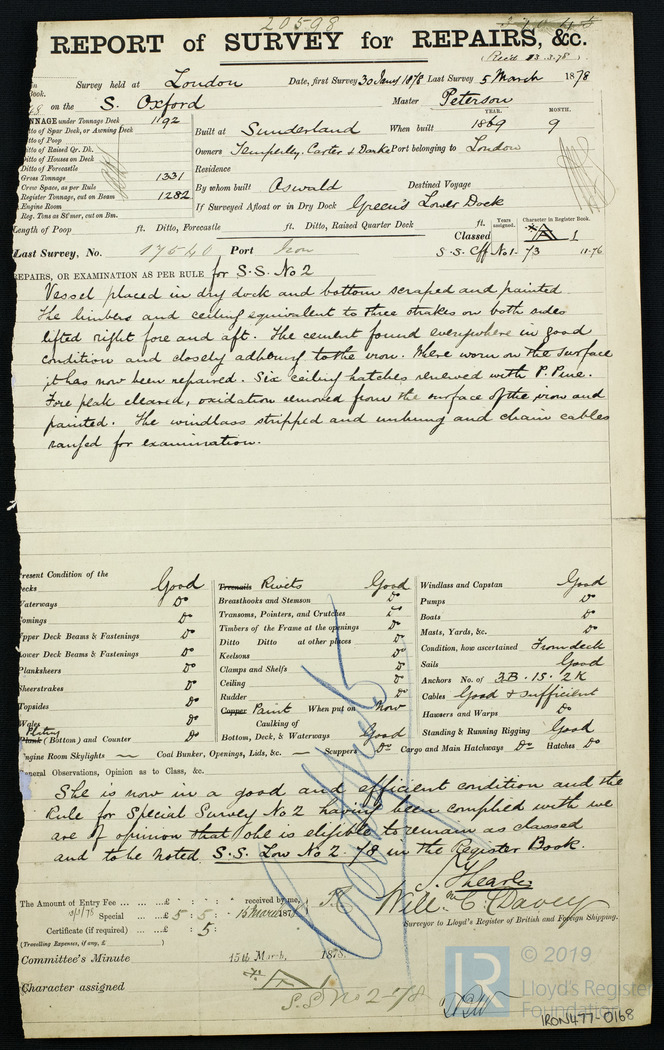 20598
REPORT of SURVEY for REPAIRS, &c.
(Recd 13.3.78)
Survey held at London Date, first Survey 30 Jany 1878 Last Survey 5 March 1878
on the S. Oxford Master Peterson
TONNAGE under Tonnage Deck 1192
Ditto of Spar Deck, or Awning Deck
Ditto of Poop
Ditto of Raised Qr. Dk.
Ditto of Houses on Deck
Ditto of Forecastle
Gross Tonnage 1331
Crew Space, as per Rule
Register Tonnage, cut on Beam 1282
Engine Room
Reg. Tons as St'mer, cut on Bm.
YEAR. MONTH.
Built at Sunderland When built 1869 9
Owners Temperley, Carter & Darke Port belonging to London
Residence
By whom built Oswald Destined Voyage
If Surveyed Afloat or in Dry Dock Green's Lower Dock
Length of Poop ft. Ditto, Forecastle ft. Ditto, Raised Quarter Deck ft.
Years assigned. Character in Register Book.
Classed A 1
Last Survey, No. 17540 Port Iron
S.S. Cff No 1-73 11-76
REPAIRS, OR EXAMINATION AS PER RULE for S.S. No 2
Vessel placed in dry dock and bottom scraped and painted
The limbers and ceiling equivalent to three strakes on both sides
lifted right fore and aft. The cement found everywhere in good
condition and closely adhering to the iron. Where worn on the surface
it has now been repaired. Six ceiling hatches renewed with P. Pine.
Fore peak cleared, oxidation removed from the surface of the iron and
painted. The windlass stripped and unhung and chain cables
ranged for examination.
Present Condition of the
Decks Good
Waterways Do
Comings Do
Upper Deck Beams & Fastenings Do
Lower Deck Beams & Fastenings Do
Planksheers Do
Sheerstrakes Do
Topsides Do
Wales Do
Plating
Plank (Bottom) and Counter Do
Engine Room Skylights — Coal Bunker, Openings, Lids, &c. — Scuppers Do Cargo and Main Hatchways Do Hatches Do
Treenails Rivets Good
Breasthooks and Stemson Do
Transoms, Pointers, and Crutches Do
Timbers of the Frame at the openings Do
Ditto Ditto at other places Do
Keelsons Do
Clamps and Shelfs Do
Ceiling Do
Rudder Do
Copper Paint When put on Now
Caulking of
Bottom, Deck, & Waterways Good
Windlass and Capstan Good
Pumps Do
Boats Do
Masts, Yards, &c. Do
Condition, how ascertained From deck
Sails Good
Anchors No. of 3B. 1S. 2K
Cables Good & sufficient
Hawsers and Warps Do
Standing & Running Rigging Good
General Observations, Opinion as to Class, &c.
She is now in a good and efficient condition and the
Rule for Special Survey No 2 having been complied with we
are of opinion that she is eligible to remain as classed
and to be noted S.S. Lon No 2. 78 in the Register Book.
The Amount of Entry Fee ... ...£ : : received by me,
Special ... ...£ 5 : 5 : 15 March 1878
Certificate (if required) ... : 5 :
(Travelling Expenses, if any, £ )
Will. C. Davey
Surveyor to Lloyd's Register of British and Foreign Shipping.
Committee's Minute 15th March, 1878.
Character assigned A 1
S.S. No 2-78
LR
© 2019
Lloyd's Register
Foundation
IRON477-0168